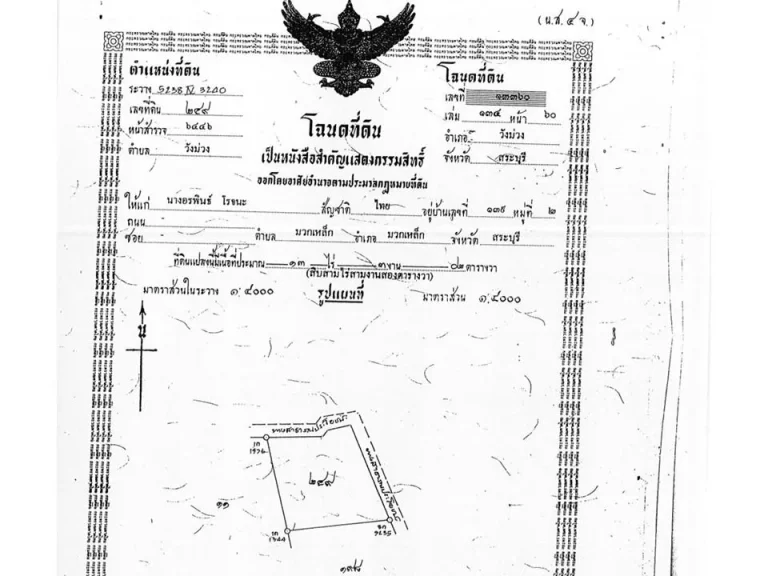 (น.ส. ๔ จ.)
ตำแหน่งที่ดิน
ระวาง 5238 IV 3240
เลขที่ดิน ๒๔๙
หน้าสำรวจ ๖๔๔๖
ตำบล วังม่วง
โฉนดที่ดิน
เลขที่ ๑๓๓๖๐
เล่ม ๑๓๔ หน้า ๖๐
อำเภอ วังม่วง
จังหวัด สระบุรี
โฉนดที่ดิน
เป็นหนังสือสำคัญแสดงกรรมสิทธิ์
ออกโดยอาศัยอำนาจตามประมวลกฎหมายที่ดิน
ให้แก่ นางอรพินธ์ โรจนะ สัญชาติ ไทย อยู่บ้านเลขที่ ๑๓๙ หมู่ที่ ๒
ถนน -
ซอย - ตำบล มวกเหล็ก อำเภอ มวกเหล็ก จังหวัด สระบุรี
ที่ดินแปลงนี้มีเนื้อที่ประมาณ ๑๓ ไร่ ๓ งาน ๐๒ ตารางวา
(สิบสามไร่สามงานสองตารางวา)
มาตราส่วนในระวาง ๑:๔๐๐๐ รูปแผนที่ มาตราส่วน ๑:๔๐๐๐
น
ทางสาธารณประโยชน์
ทางสาธารณประโยชน์
๒๔๙
๑๑
๑๓๘